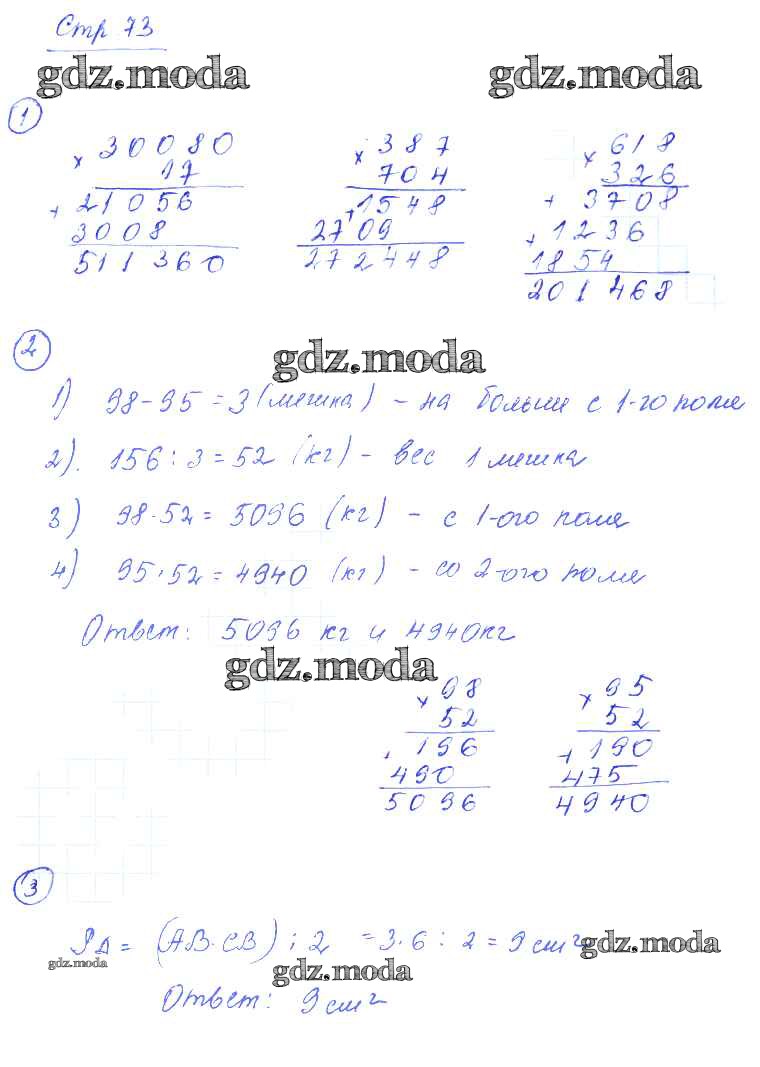 Стр 73
gdz.moda gdz.moda
1
× 30080 × 387 × 618
17 704 326
+ 21056 + 1548 + 3708
3008 2709 + 1236
511360 272448 1854
201468
2
gdz.moda
1) 98-95=3(мешка) - на больше с 1-го поля
2). 156:3=52 (кг) - вес 1 мешка
3) 98·52=5096 (кг) - с 1-ого поля
4) 95·52=4940 (кг) - со 2-ого поля
Ответ: 5096 кг и 4940кг
gdz.moda
× 98 × 95
52 52
+ 196 + 190
490 475
5096 4940
3
SΔ = (AB·CB) : 2 = 3·6 : 2 = 9 см² gdz.moda
gdz.moda
gdz.moda
Ответ: 9 см²